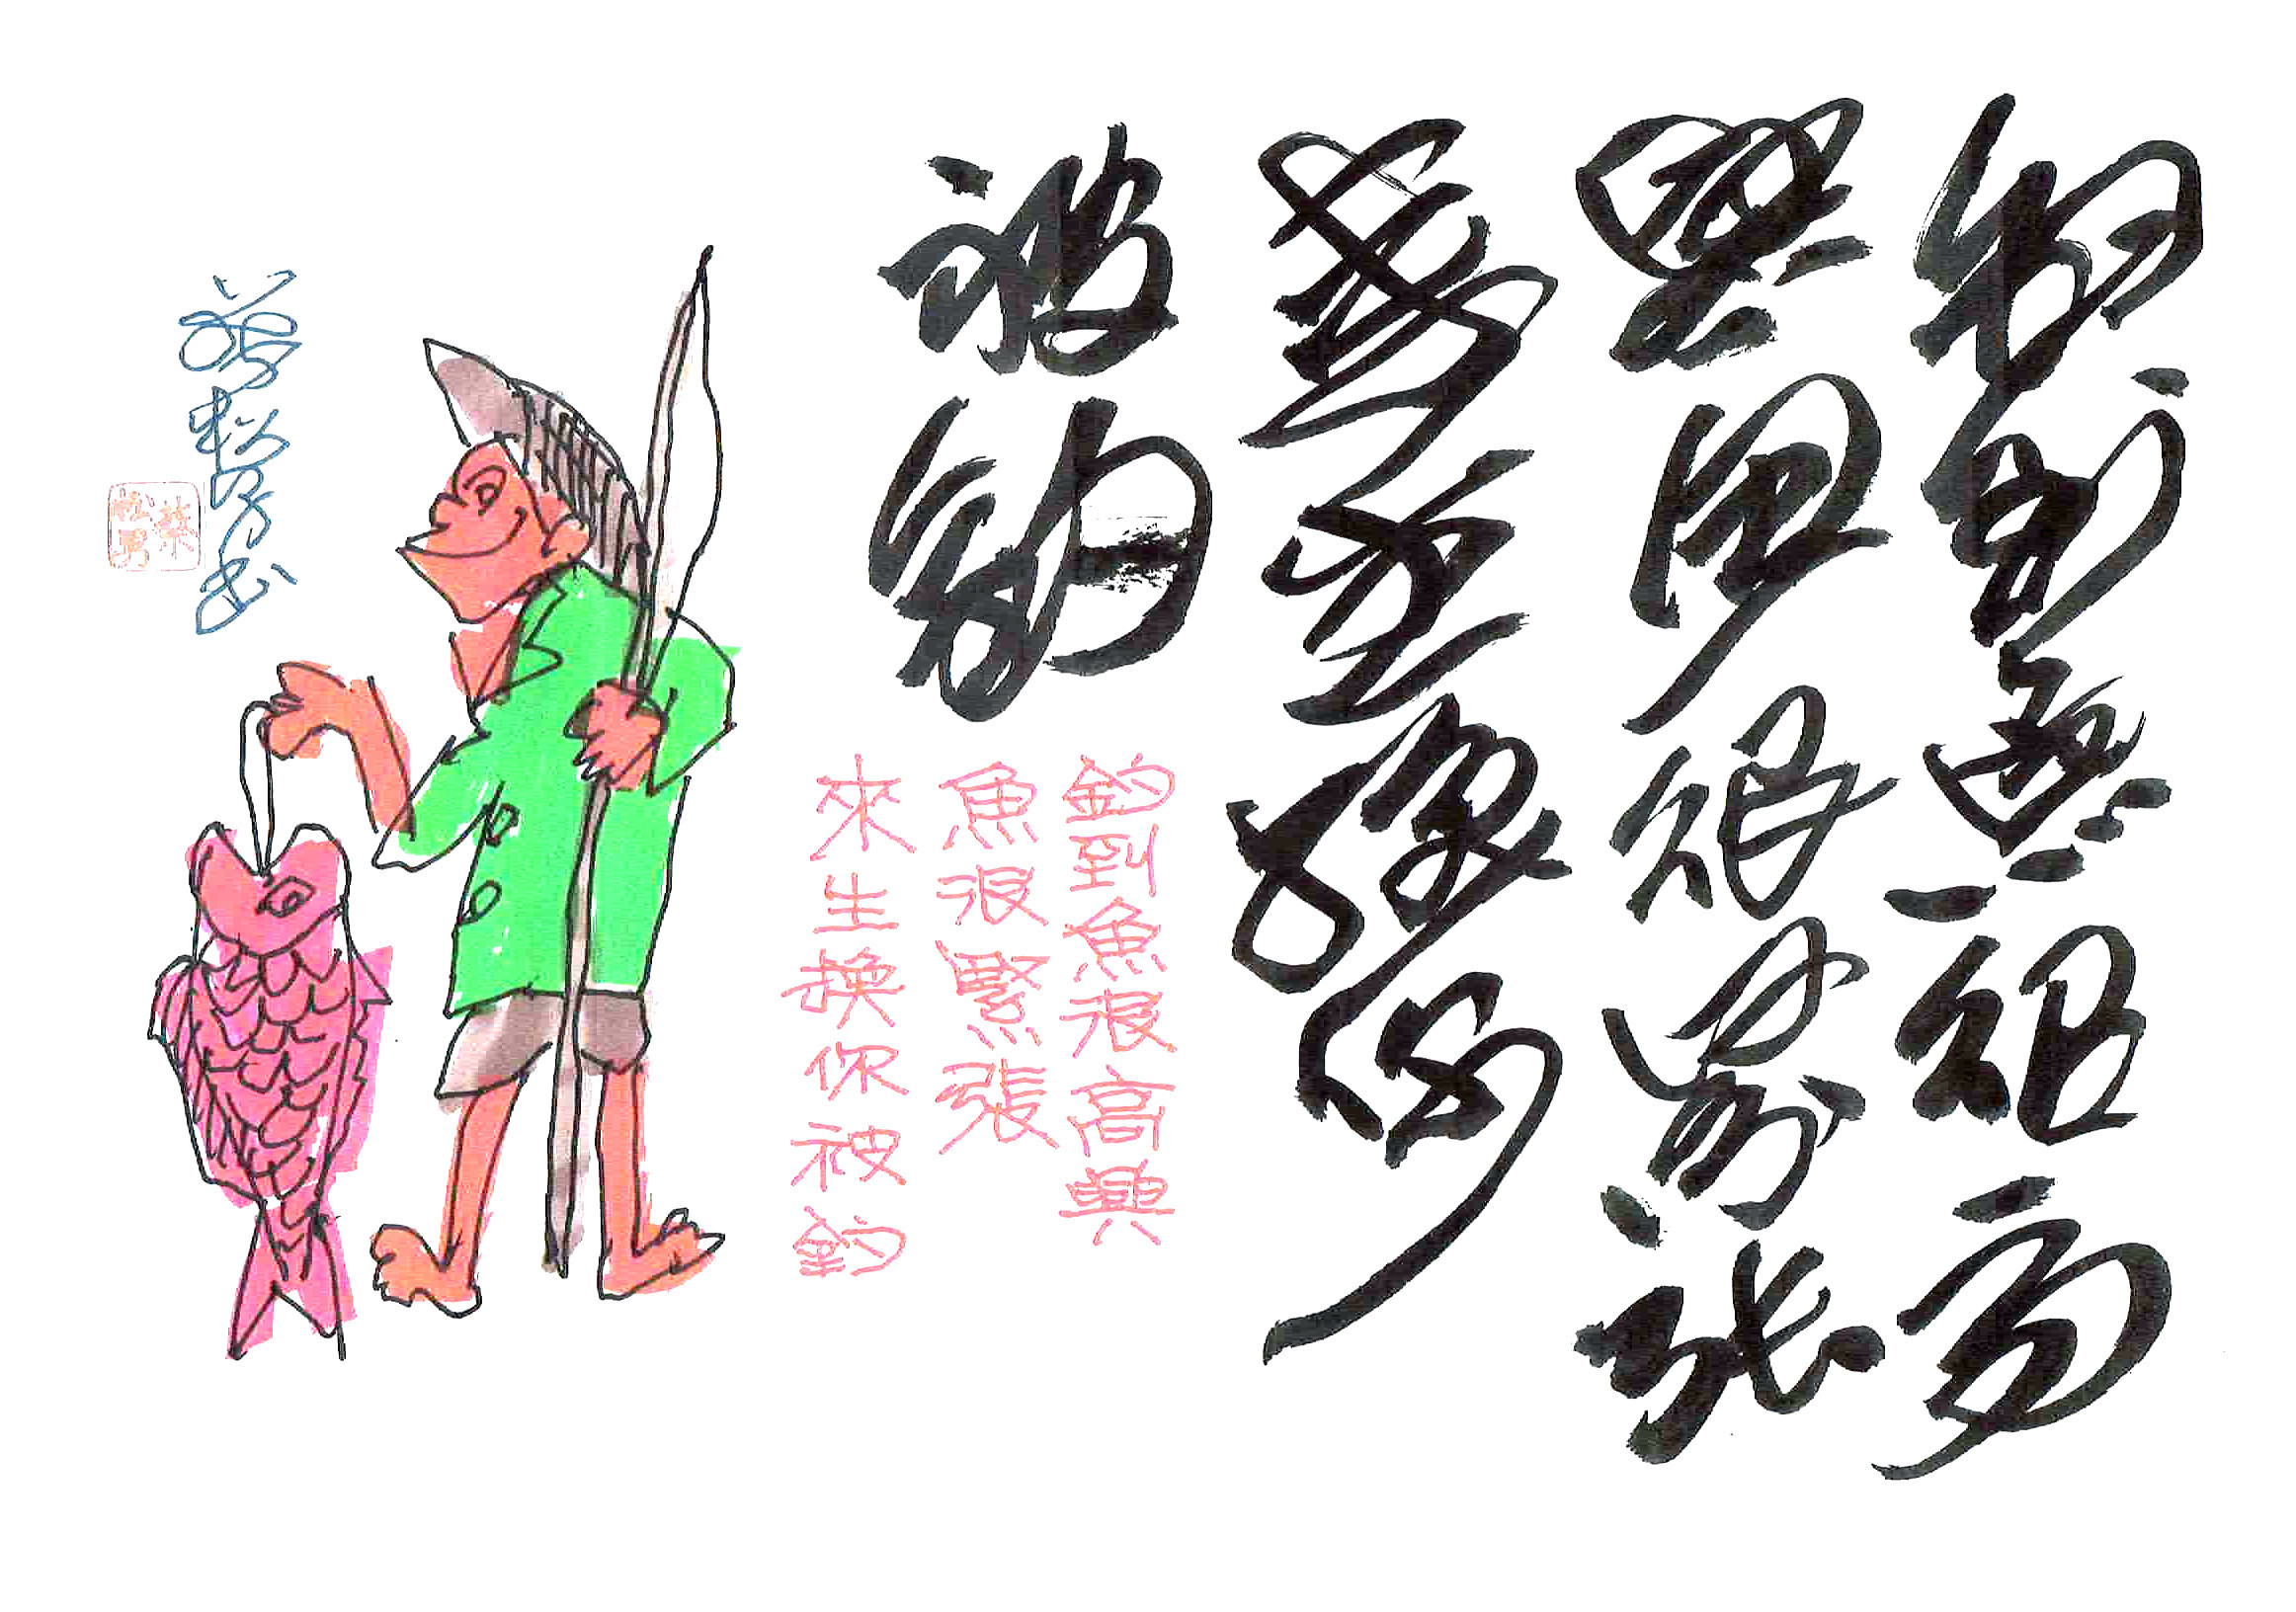 釣到魚很高
興魚很緊張
來生換你
被釣
釣到魚很高興
魚很緊張
來生換你被釣
松男書
松男